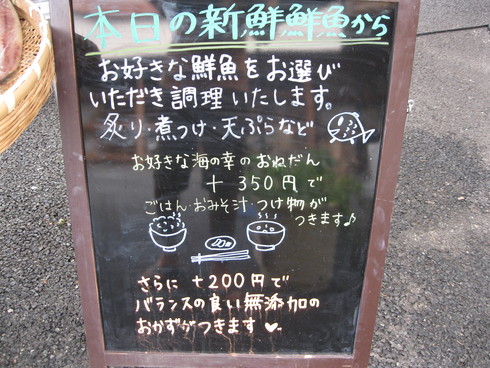 本日の新鮮鮮魚から
お好きな鮮魚をお選び
いただき調理いたします。
炙り・煮つけ・天ぷらなど
お好きな海の幸のおねだん
+350円で
ごはん・おみそ汁・つけ物が
つきます♪
さらに+200円で
バランスの良い無添加の
おかずがつきます♥